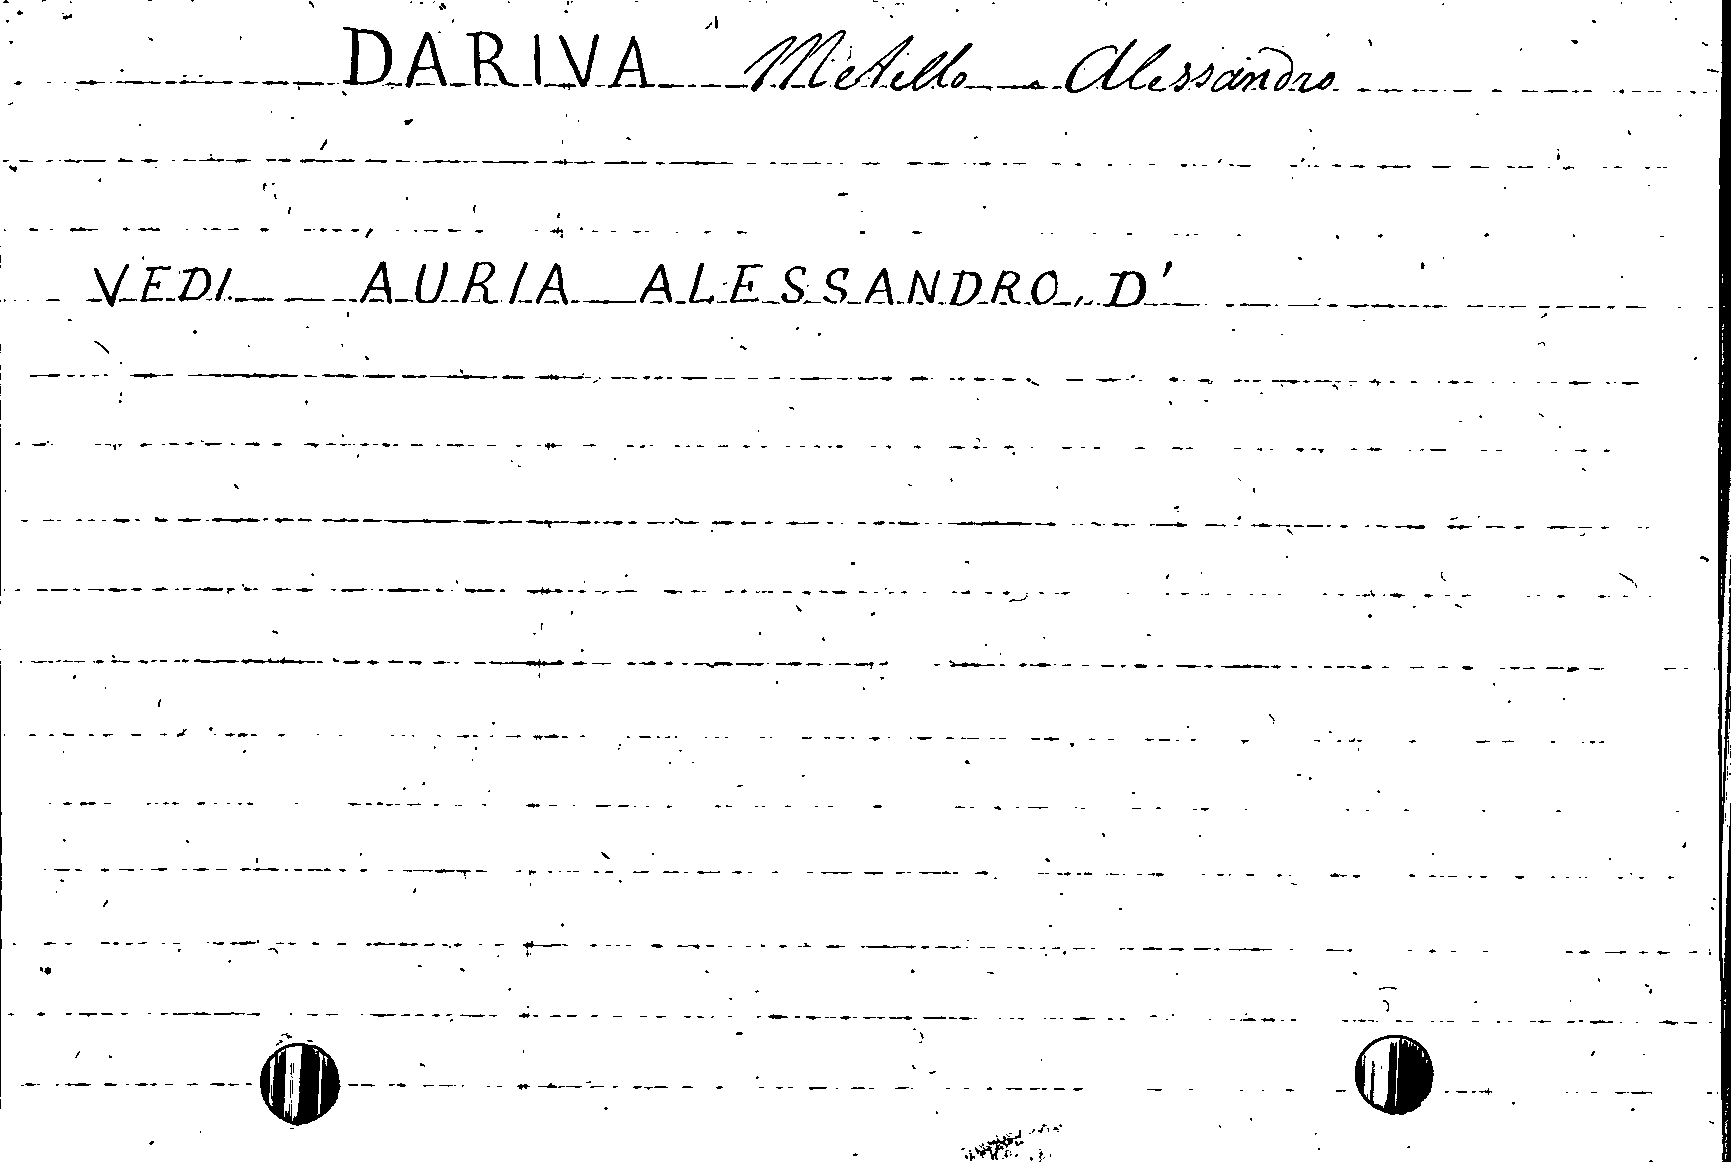 DARIVA Metello Alessandro
VEDI AURIA ALESSANDRO, D'